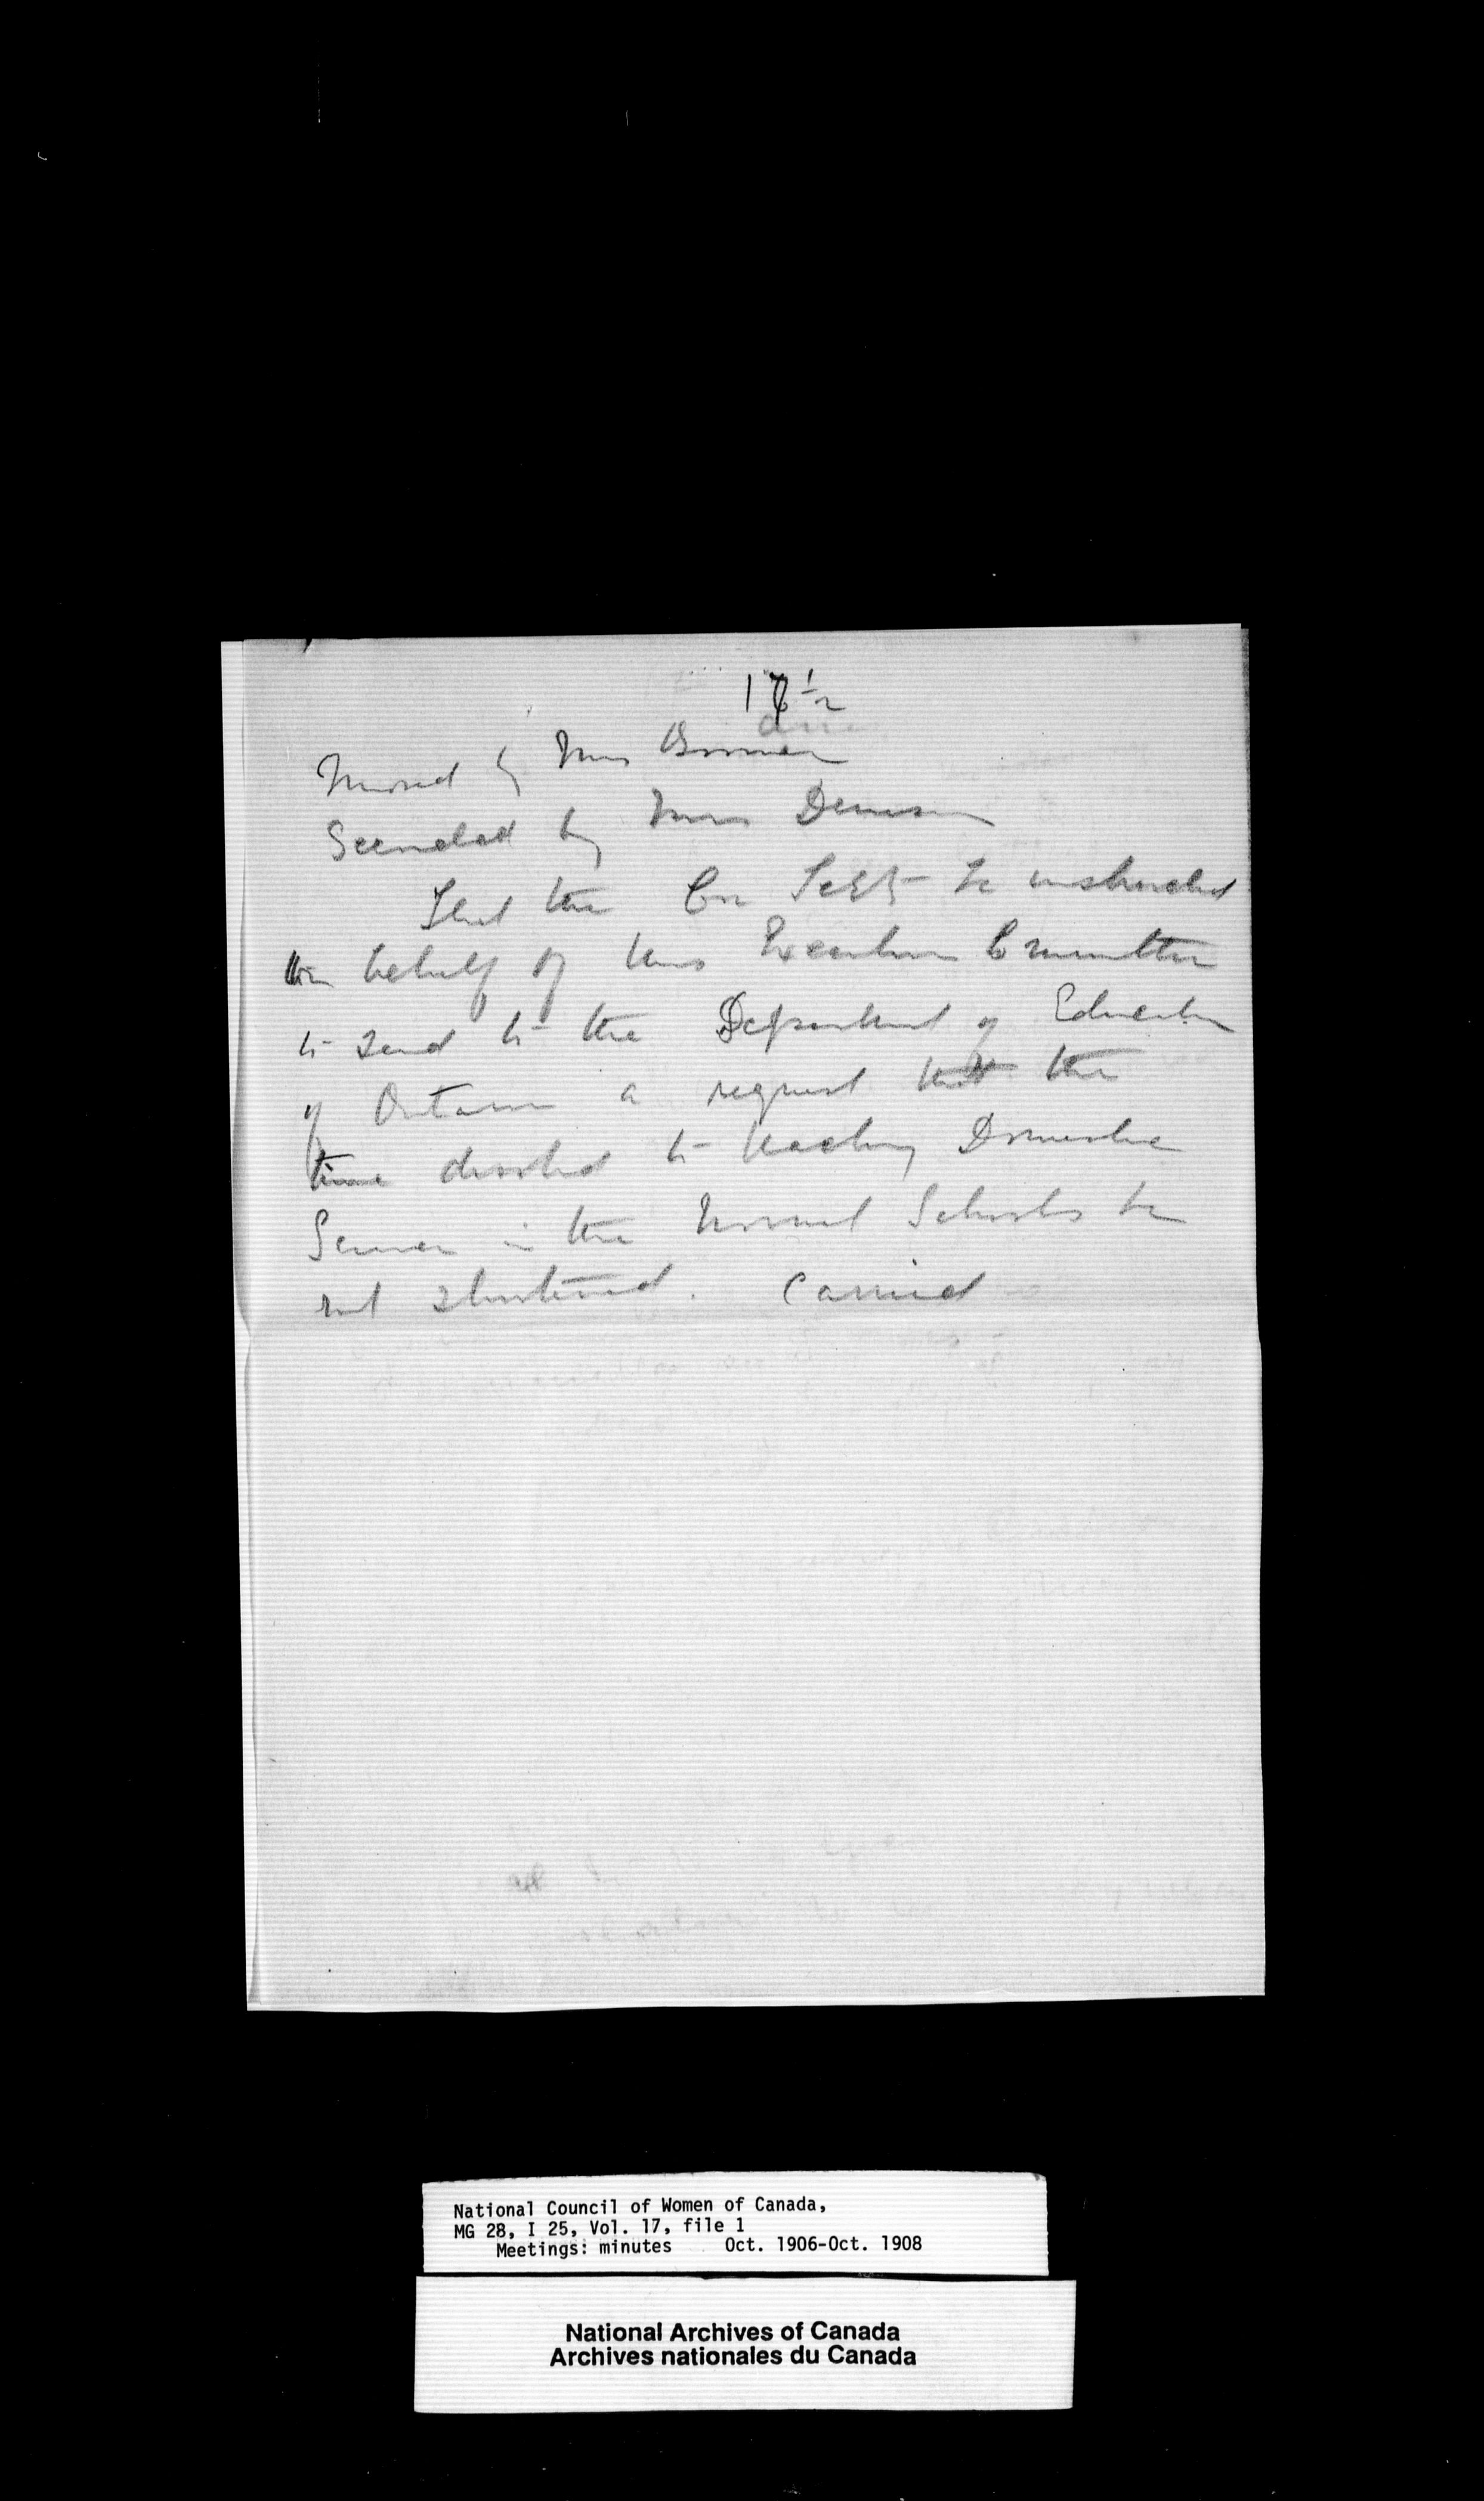 17 1/2
Moved by Mrs Boomer
Seconded by Mrs Denison
That the Cor Secty be instructed
on behalf of this Executive Committee
to send to the Department of Education
of Ontario a request that the
time devoted to teaching Domestic
Science in the Normal Schools be
not shortened. Carried
National Council of Women of Canada,
MG 28, I 25, Vol. 17, file 1
Meetings: minutes Oct. 1906-Oct. 1908
National Archives of Canada
Archives nationales du Canada